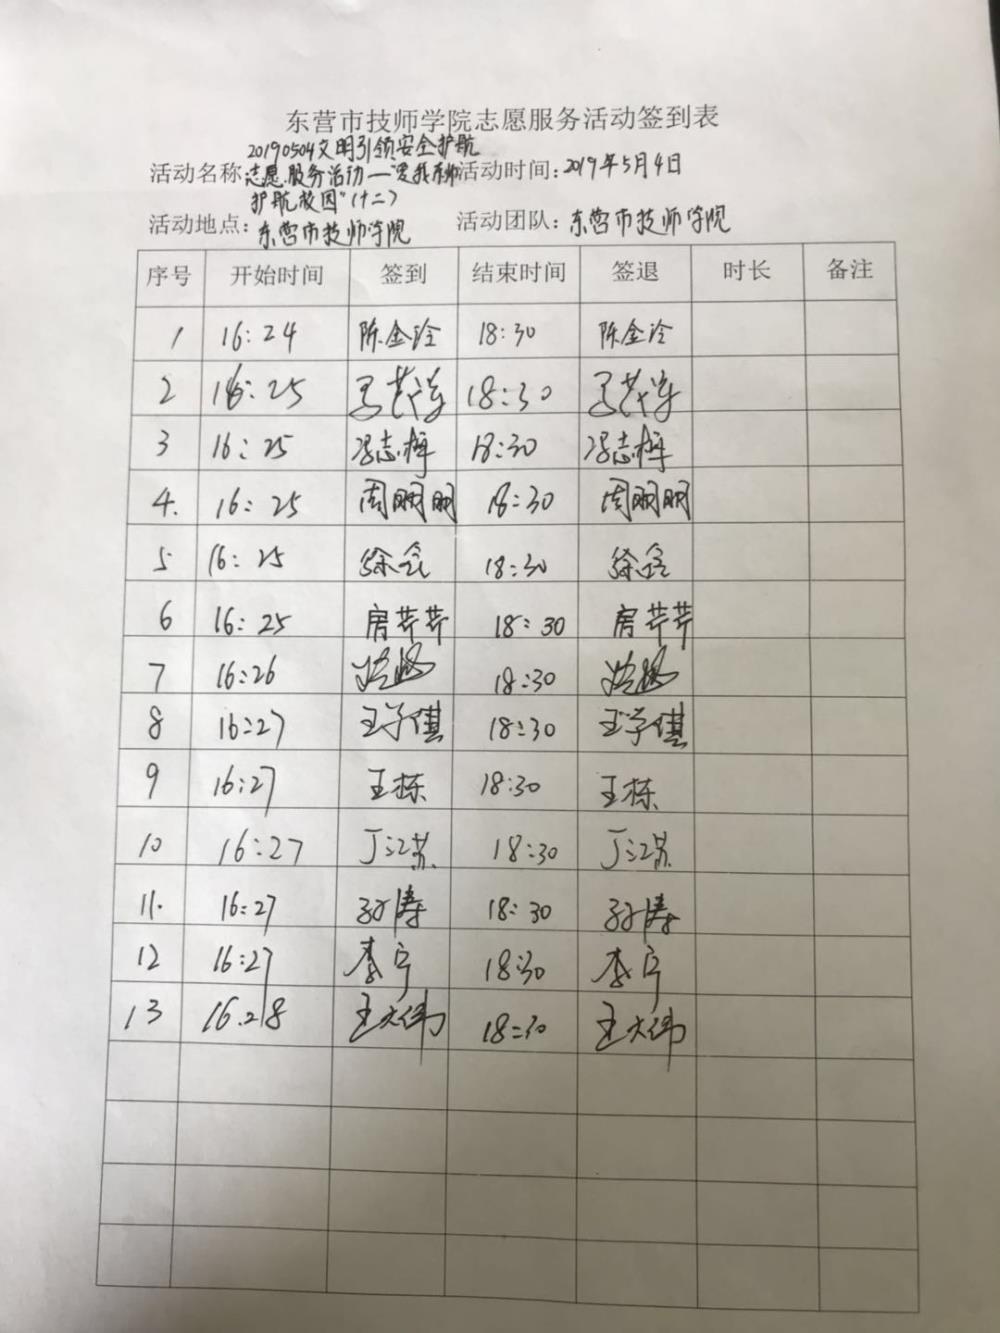 东营市技师学院志愿服务活动签到表
20190504文明引领安全护航
活动名称:志愿服务活动—"爱我 活动时间:2019年5月4日
护航校园"(十二)
活动地点:东营市技师学院 活动团队:东营市技师学院
序号 开始时间 签到 结束时间 签退 时长 备注
1 16:24 陈金玲 18:30 陈金玲
2 16:25 18:30
3 16:25 冯志梅 18:30 冯志梅
4. 16:25 周明明 18:30 周明明
5 16:25 徐会 18:30 徐会
6 16:25 房芹芹 18:30 房芹芹
7 16:26 18:30
8 16:27 王学供 18:30 王学供
9 16:27 王栋 18:30 王栋
10 16:27 丁江苏 18:30 丁江苏
11. 16:27 孙涛 18:30 孙涛
12 16:27 李宁 18:30 李宁
13 16.28 王大伟 18:30 王大伟